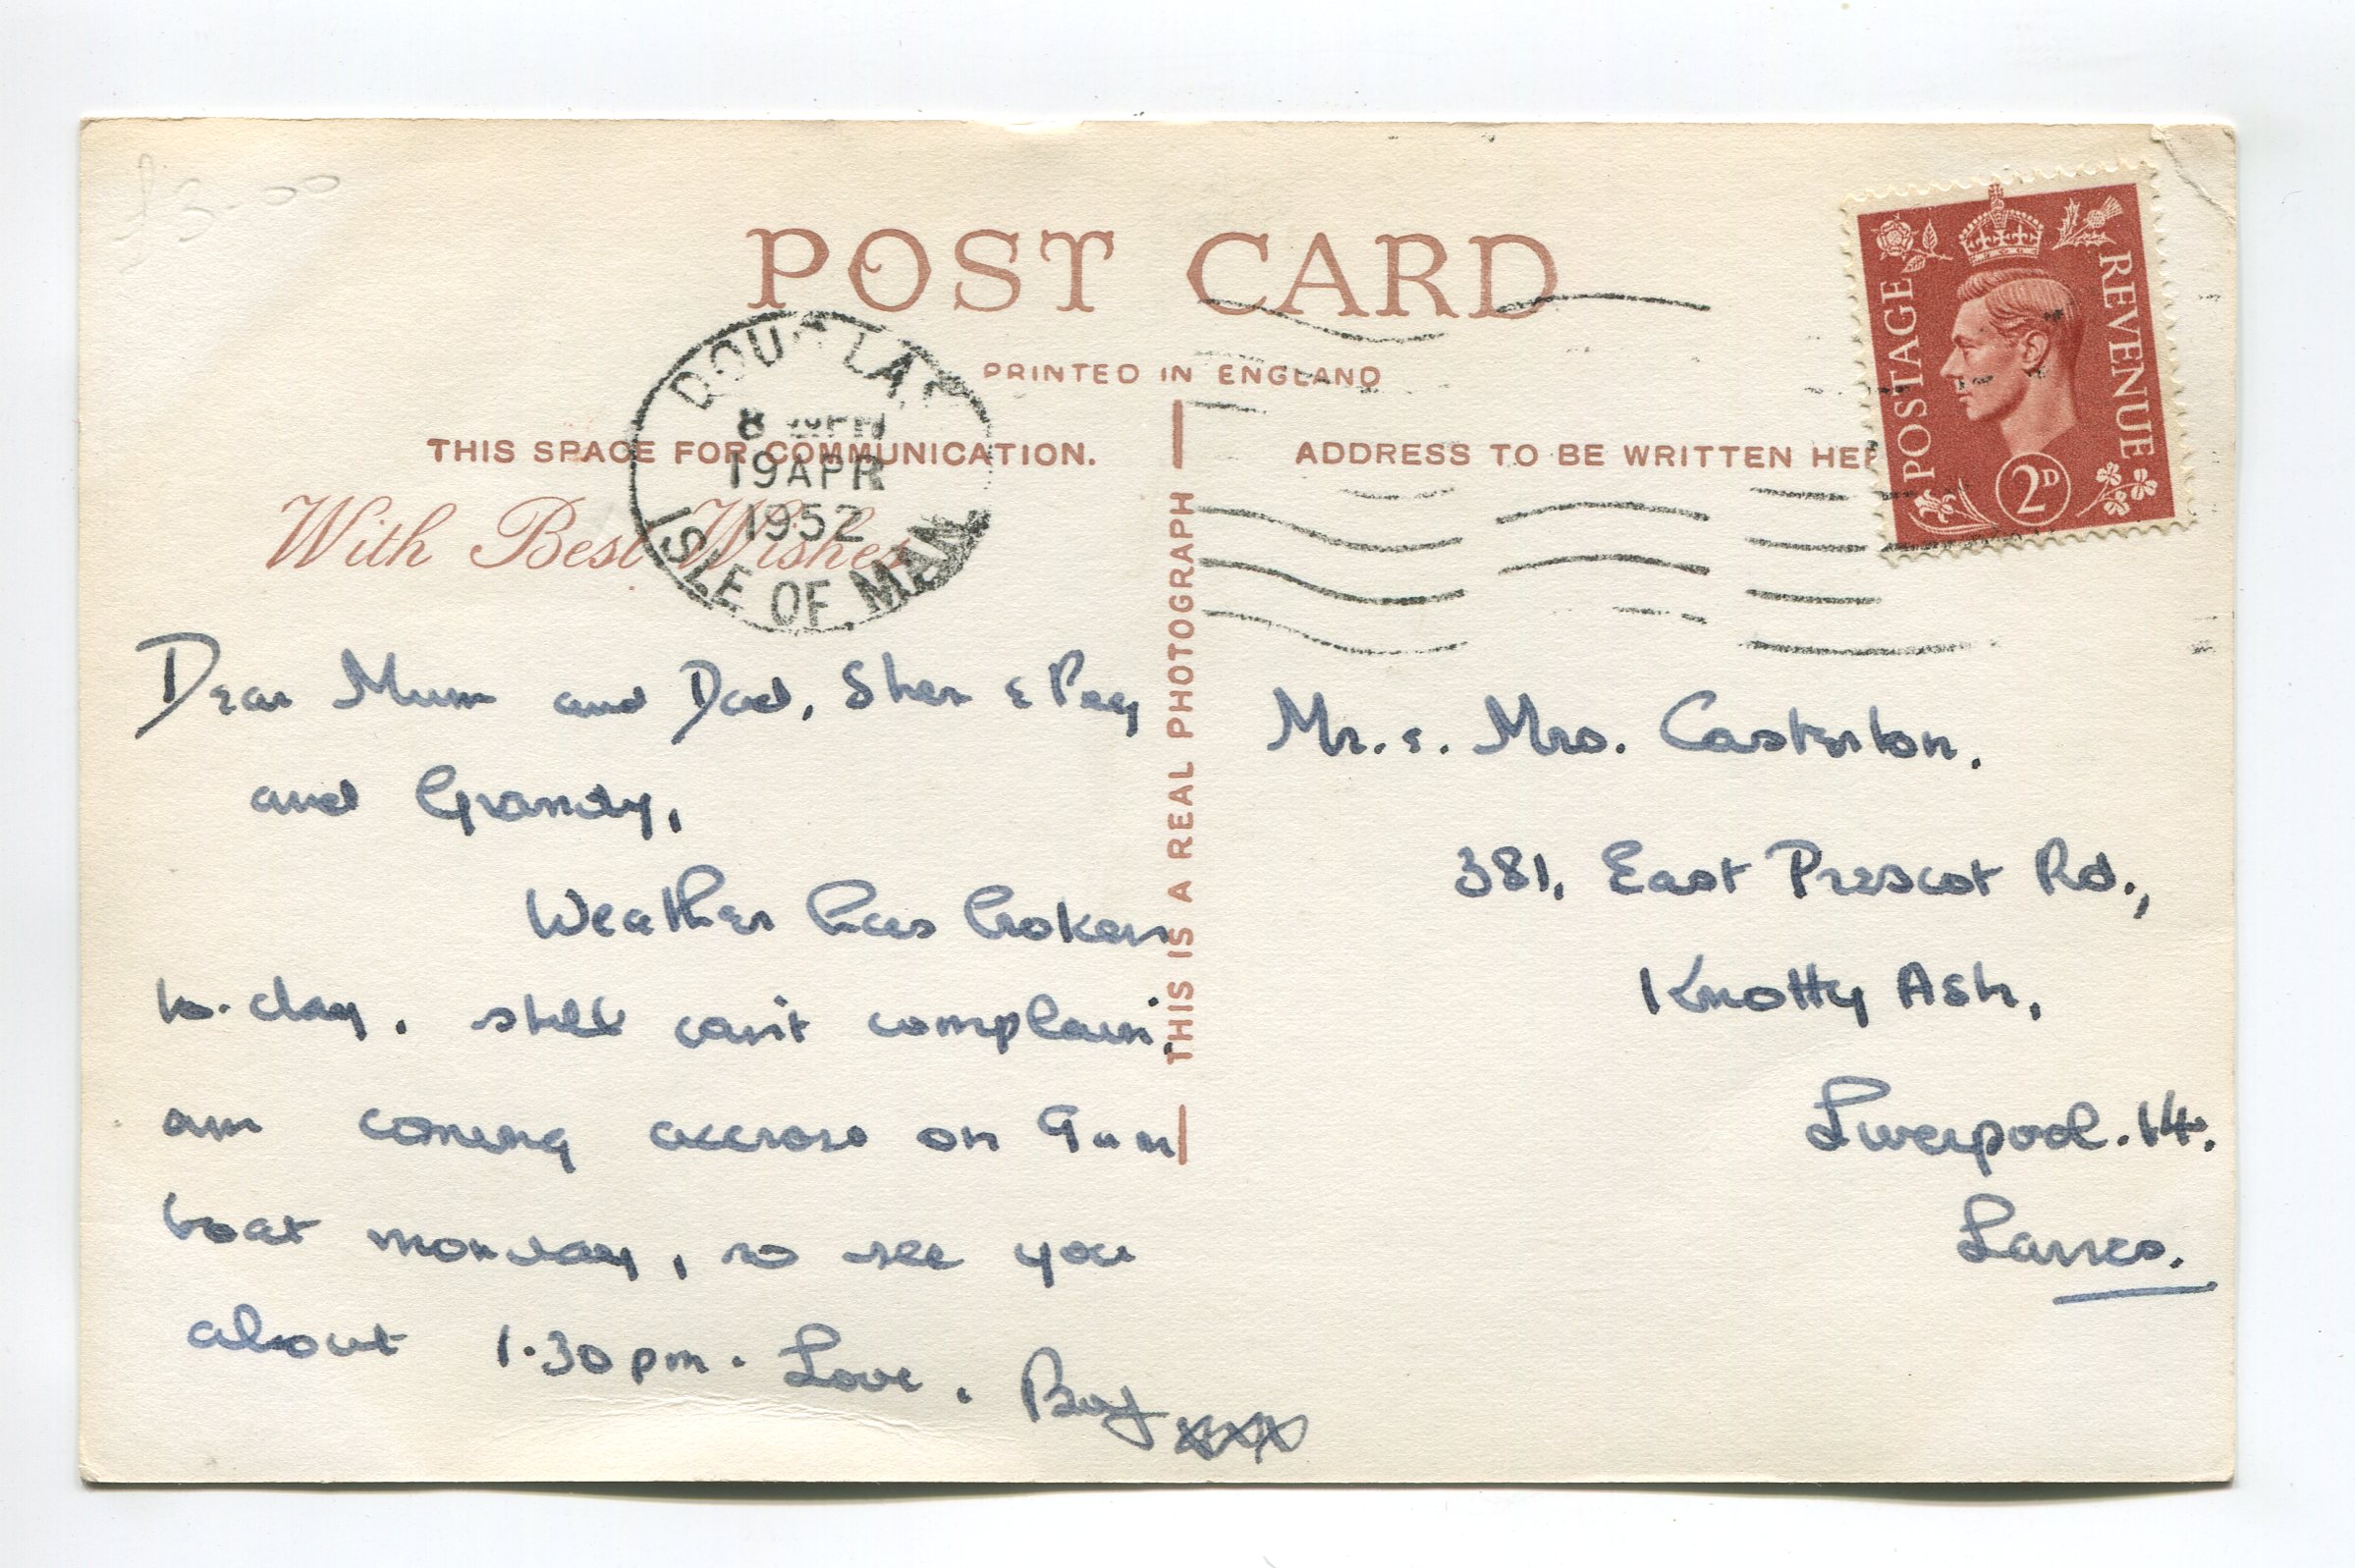 £3-00
POST CARD
PRINTED IN ENGLAND
THIS SPACE FOR COMMUNICATION.
ADDRESS TO BE WRITTEN HER
With Best Wishes
DOUGLAS
8 PM
19 APR
1952
ISLE OF MAN
POSTAGE
REVENUE
2D
THIS IS A REAL PHOTOGRAPH
Dear Mum and Dad, Sher & Peg
and Grandy,
Weather has broken
to-day. still can't complain.
am coming accross on 9am
boat monday, so see you
about 1.30pm. Love. xxx
Mr. &. Mrs. Casterton.
381, East Prescot Rd.,
Knotty Ash,
Liverpool. 14.
Lancs.